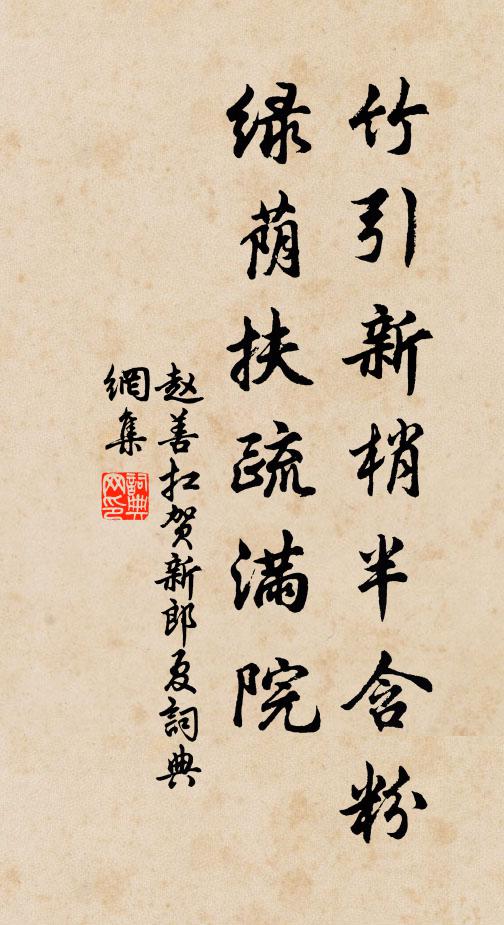 竹引新梢半含粉
绿荫扶疏满院
赵善扛贺新郎夏词典
網集
詞典
网印